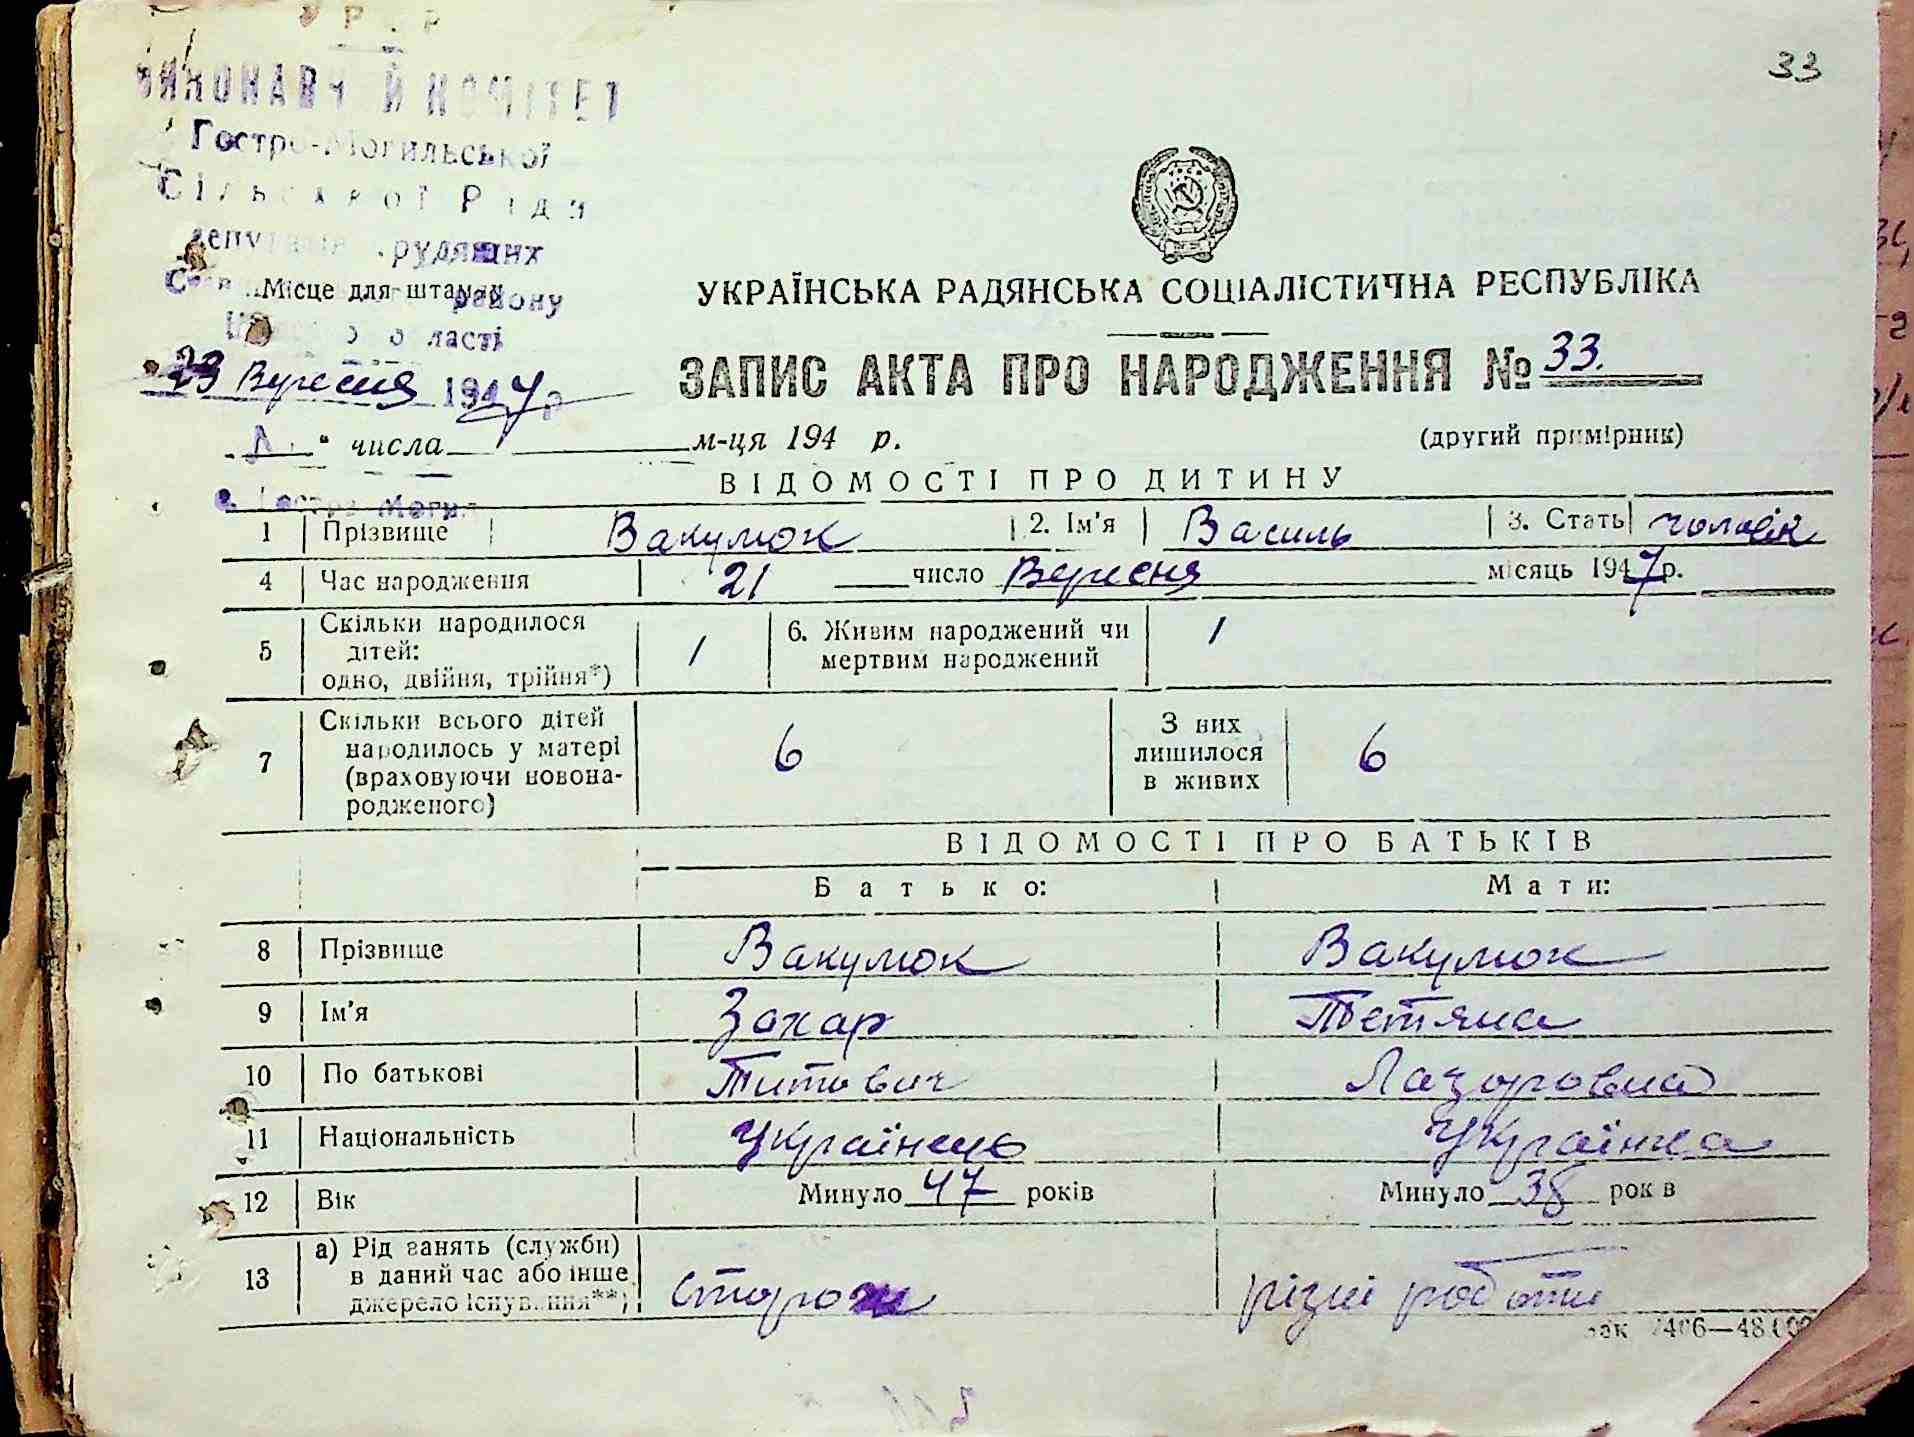 33
ВИКОНАВЧИЙ КОМІТЕТ
Гостро-Могильської
Сільської Ради
депутатів трудящих
Місце для штампа
району
області
23 Вересня 1947 р
числа м-ця 194 р.
с. Гостра Могил
УКРАЇНСЬКА РАДЯНСЬКА СОЦІАЛІСТИЧНА РЕСПУБЛІКА
ЗАПИС АКТА ПРО НАРОДЖЕННЯ № 33.
(другий примірник)
ВІДОМОСТІ ПРО ДИТИНУ
1 Прізвище Вакулюк 2. Ім'я Василь 3. Стать чоловік
4 Час народження 21 число Вересня місяць 1947 р.
5 Скільки народилося дітей: одно, двійня, трійня*) 1 6. Живим народжений чи мертвим народжений 1
7 Скільки всього дітей народилось у матері (враховуючи новонародженого) 6 З них лишилося в живих 6
ВІДОМОСТІ ПРО БАТЬКІВ
Батько: Мати:
8 Прізвище Вакулюк Вакулюк
9 Ім'я Захар Тетяна
10 По батькові Титович Лазоровна
11 Національність Українець Українка
12 Вік Минуло 47 років Минуло 38 рок в
13 а) Рід занять (служби) в даний час або інше джерело існування**) Сторож різні роботи